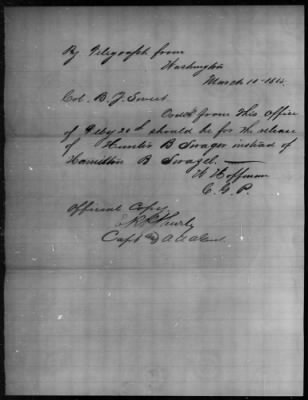 By Telegraph from
Washington
March 10 - 1865.
Col. B. J. Sweet
Order from this Office
of Feby 20th should be for the release
of Hunter B Swager instead of
Hamilton B Swazel. —
W Hoffman
C. G. P.
Official Copy
Capt &